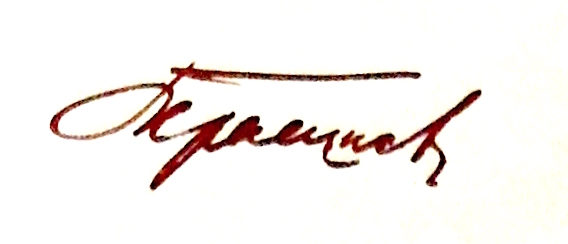 Герасимов